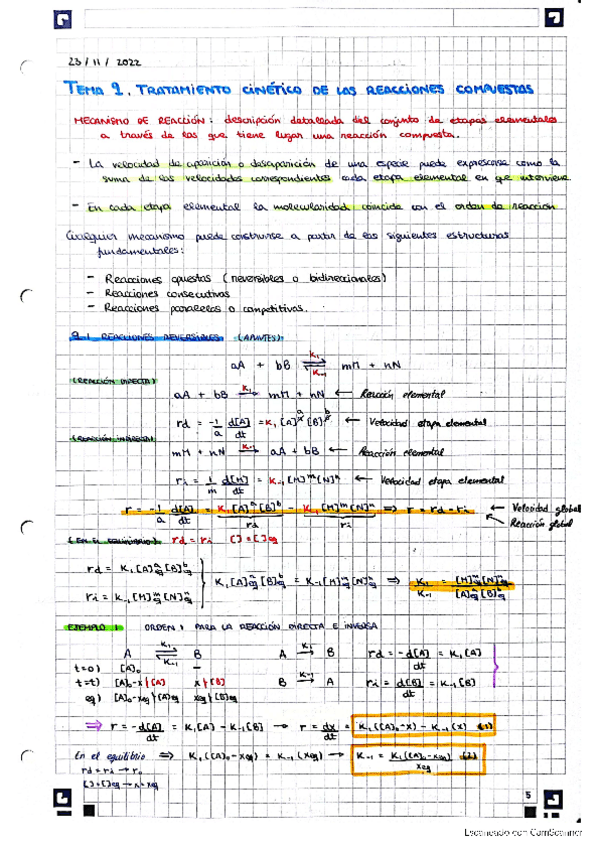 23/11/2022
TEMA 9. TRATAMIENTO CINÉTICO DE LAS REACCIONES COMPUESTAS
MECANISMO DE REACCIÓN: descripción detallada del conjunto de etapas elementales
a través de las que tiene lugar una reacción compuesta.
- La velocidad de aparición o desaparición de una especie puede expresarse como la
suma de las velocidades correspondientes cada etapa elemental en que interviene
- En cada etapa elemental la molecularidad coincide con el orden de reacción
Cualquier mecanismo puede construirse a partir de las siguientes estructuras
fundamentales:
- Reacciones opuestas (reversibles o bidireccionales)
- Reacciones consecutivas
- Reacciones paralelas o competitivas.
9.1 REACCIONES REVERSIBLES (APUNTES)
aA + bB ⇌ mM + nN
K₁
K₋₁
(REACCIÓN DIRECTA)
aA + bB →K₁ mM + nN ← Reacción elemental
rd = -1/a d[A]/dt = K₁[A]ᵃ[B]ᵇ ← Velocidad etapa elemental
(REACCIÓN INVERSA)
mM + nN →K₋₁ aA + bB ← Reacción elemental
ri = 1/m d[M]/dt = K₋₁[M]ᵐ[N]ⁿ ← Velocidad etapa elemental
r = -1/a d[A]/dt = K₁[A]ᵃ[B]ᵇ - K₋₁[M]ᵐ[N]ⁿ ⇒ r = rd - ri ← Velocidad global
rd ri Reacción global
(EN EL EQUILIBRIO) rd = ri [] = []eq
rd = K₁[A]ᵃeq[B]ᵇeq
ri = K₋₁[M]ᵐeq[N]ⁿeq
K₁[A]ᵃeq[B]ᵇeq = K₋₁[M]ᵐeq[N]ⁿeq ⇒ K₁/K₋₁ = [M]ᵐeq[N]ⁿeq/[A]ᵃeq[B]ᵇeq
EJEMPLO 1 ORDEN 1 PARA LA REACCIÓN DIRECTA E INVERSA
A ⇌ B A →K₁ B rd = -d[A]/dt = K₁[A]
K₁
K₋₁
t=0) [A]₀ -
t=t) [A]₀-x}[A] x}[B] B →K₋₁ A ri = d[B]/dt = K₋₁[B]
eq) [A]₀-xeq}[A]eq xeq}[B]eq
⇒ r = -d[A]/dt = K₁[A] - K₋₁[B] → r = dx/dt = K₁([A]₀-x) - K₋₁(x) (1)
En el equilibrio ⇒ K₁([A]₀-xeq) = K₋₁(xeq) → K₋₁ = K₁([A]₀-xeq)/xeq (2)
[] = []eq → x = xeq
5
Escaneado con CamScanner